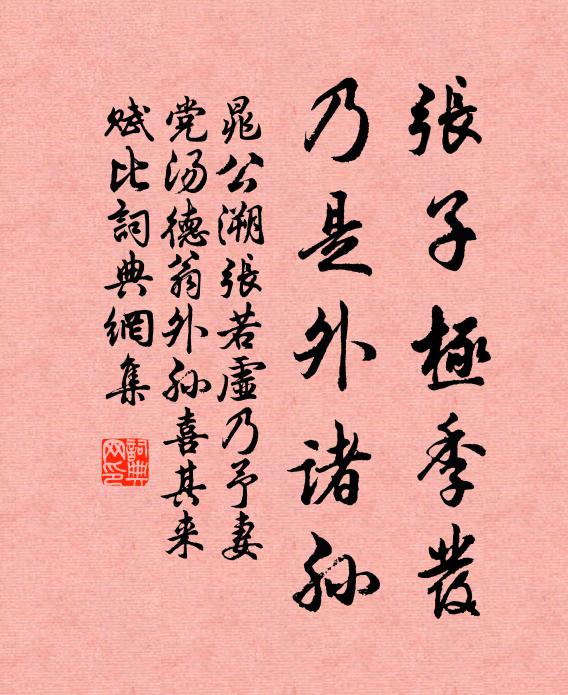 張子極季發
乃是外諸孙
晁公溯張若虛乃予妻
党汤德翁外孙喜其来
赋比詞典網集
詞典网印